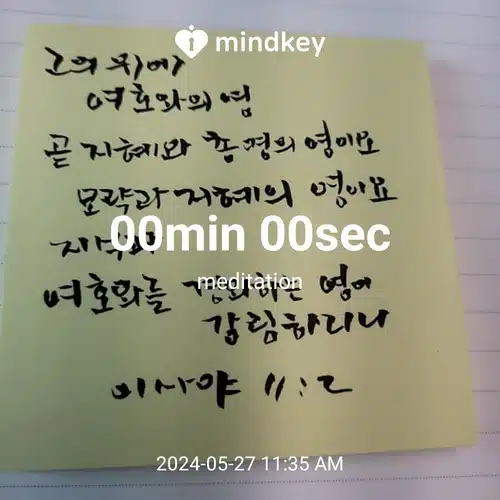 mindkey
그의 위에
여호와의 영
곧 지혜와 총명의 영이요
모략과 지혜의 영이요
00min 00sec
meditation
여호와를 경외하는 영이
강림하리니
이사야 11:2
2024-05-27 11:35 AM